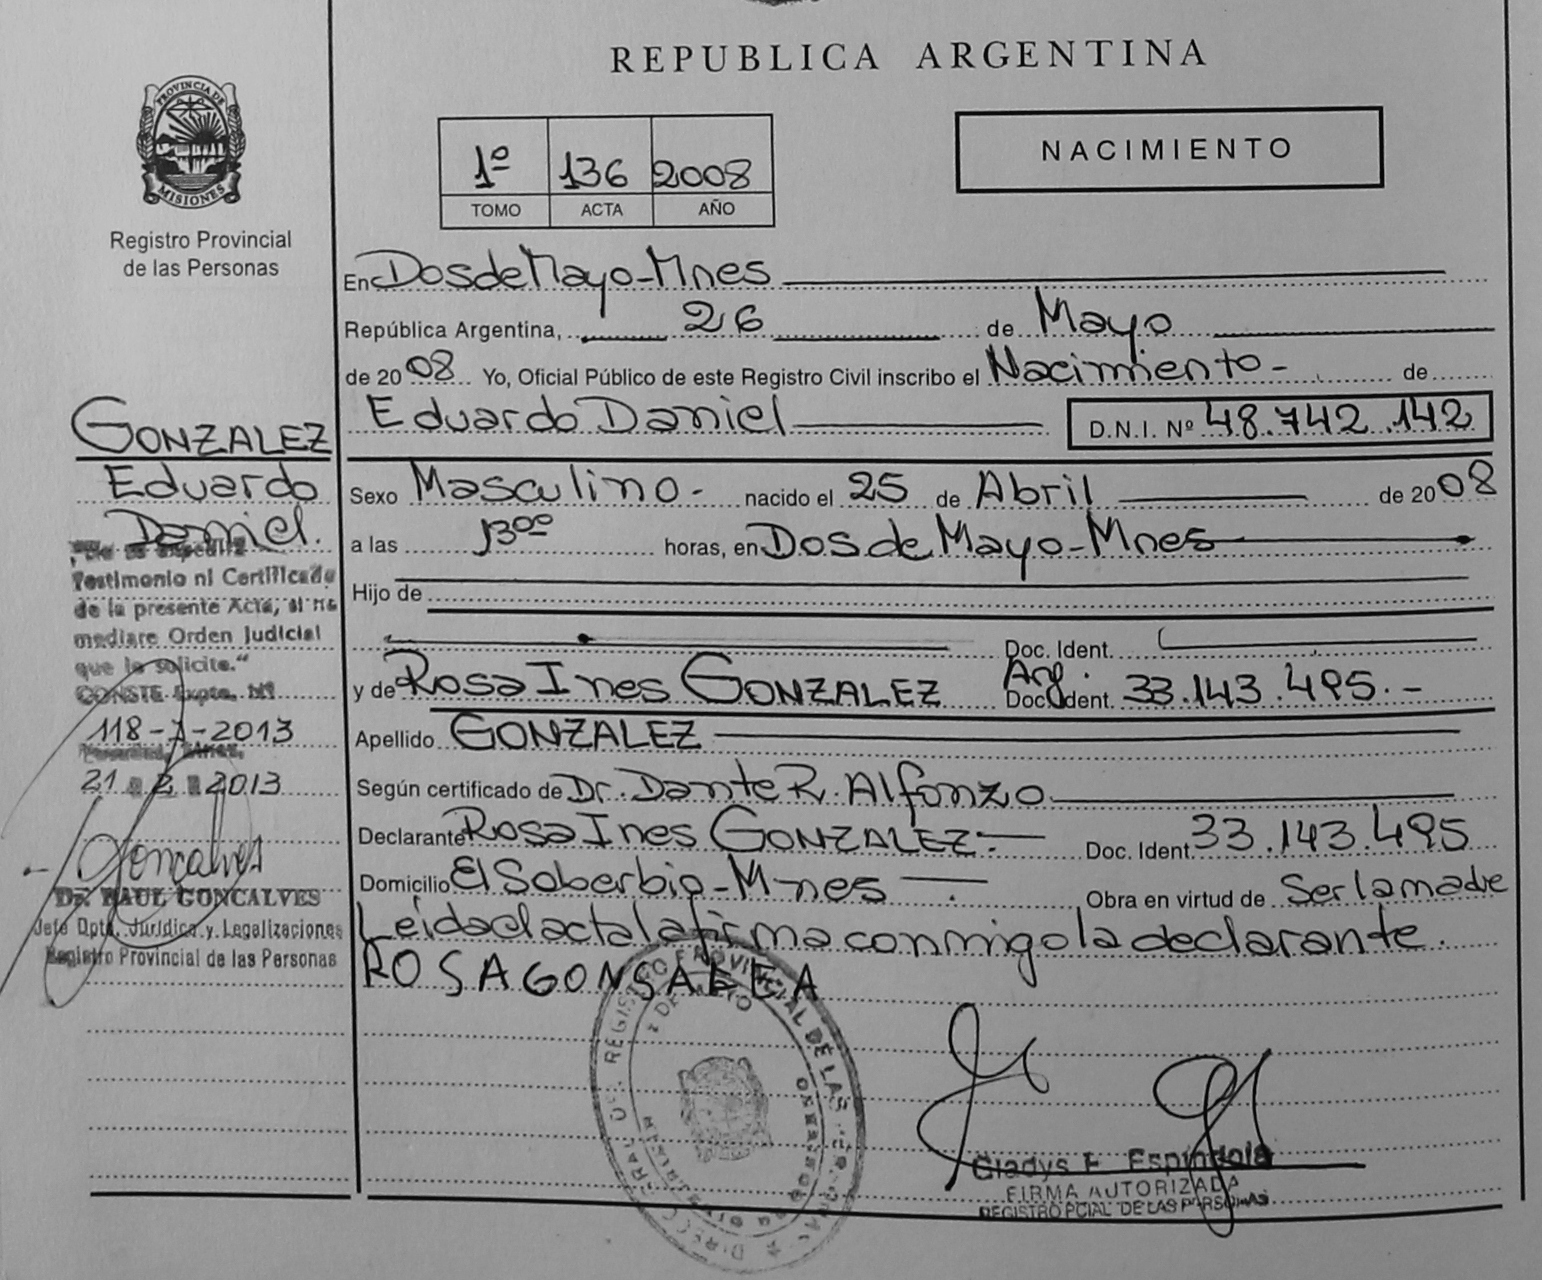 REPUBLICA ARGENTINA
PROVINCIA DE
MISIONES
Registro Provincial
de las Personas
1º 136 2008
TOMO ACTA AÑO
NACIMIENTO
En Dos de Mayo - Mnes
República Argentina, 26 de Mayo
de 2008 Yo, Oficial Público de este Registro Civil inscribo el Nacimiento - de
Eduardo Daniel D.N.I. Nº 48.742.142
Sexo Masculino - nacido el 25 de Abril de 2008
a las 13ºº horas, en Dos de Mayo - Mnes
Hijo de
Doc. Ident.
y de Rosa Ines GONZALEZ Arg. Doc. Ident. 33.143.495.-
Apellido GONZALEZ
Según certificado de Dr. Dante R. Alfonzo
Declarante Rosa Ines GONZALEZ.- Doc. Ident. 33.143.495
Domicilio El Soberbio - Mnes Obra en virtud de Ser la madre
Leida el acta la firma conmigo la declarante.
ROSA GONSALEA
GONZALEZ
Eduardo
Daniel.
Testimonio ni Certificado
de la presente Acta, si no
mediare Orden Judicial
que lo solicite."
CONSTE Expte. Nº
118-A-2013
21 2 2013
Goncalves
Dr. RAUL GONCALVES
Jefe Dpto. Jurídica y Legalizaciones
Registro Provincial de las Personas
Gladys F. Espindola
FIRMA AUTORIZADA
REGISTRO PCIAL DE LAS PERSONAS